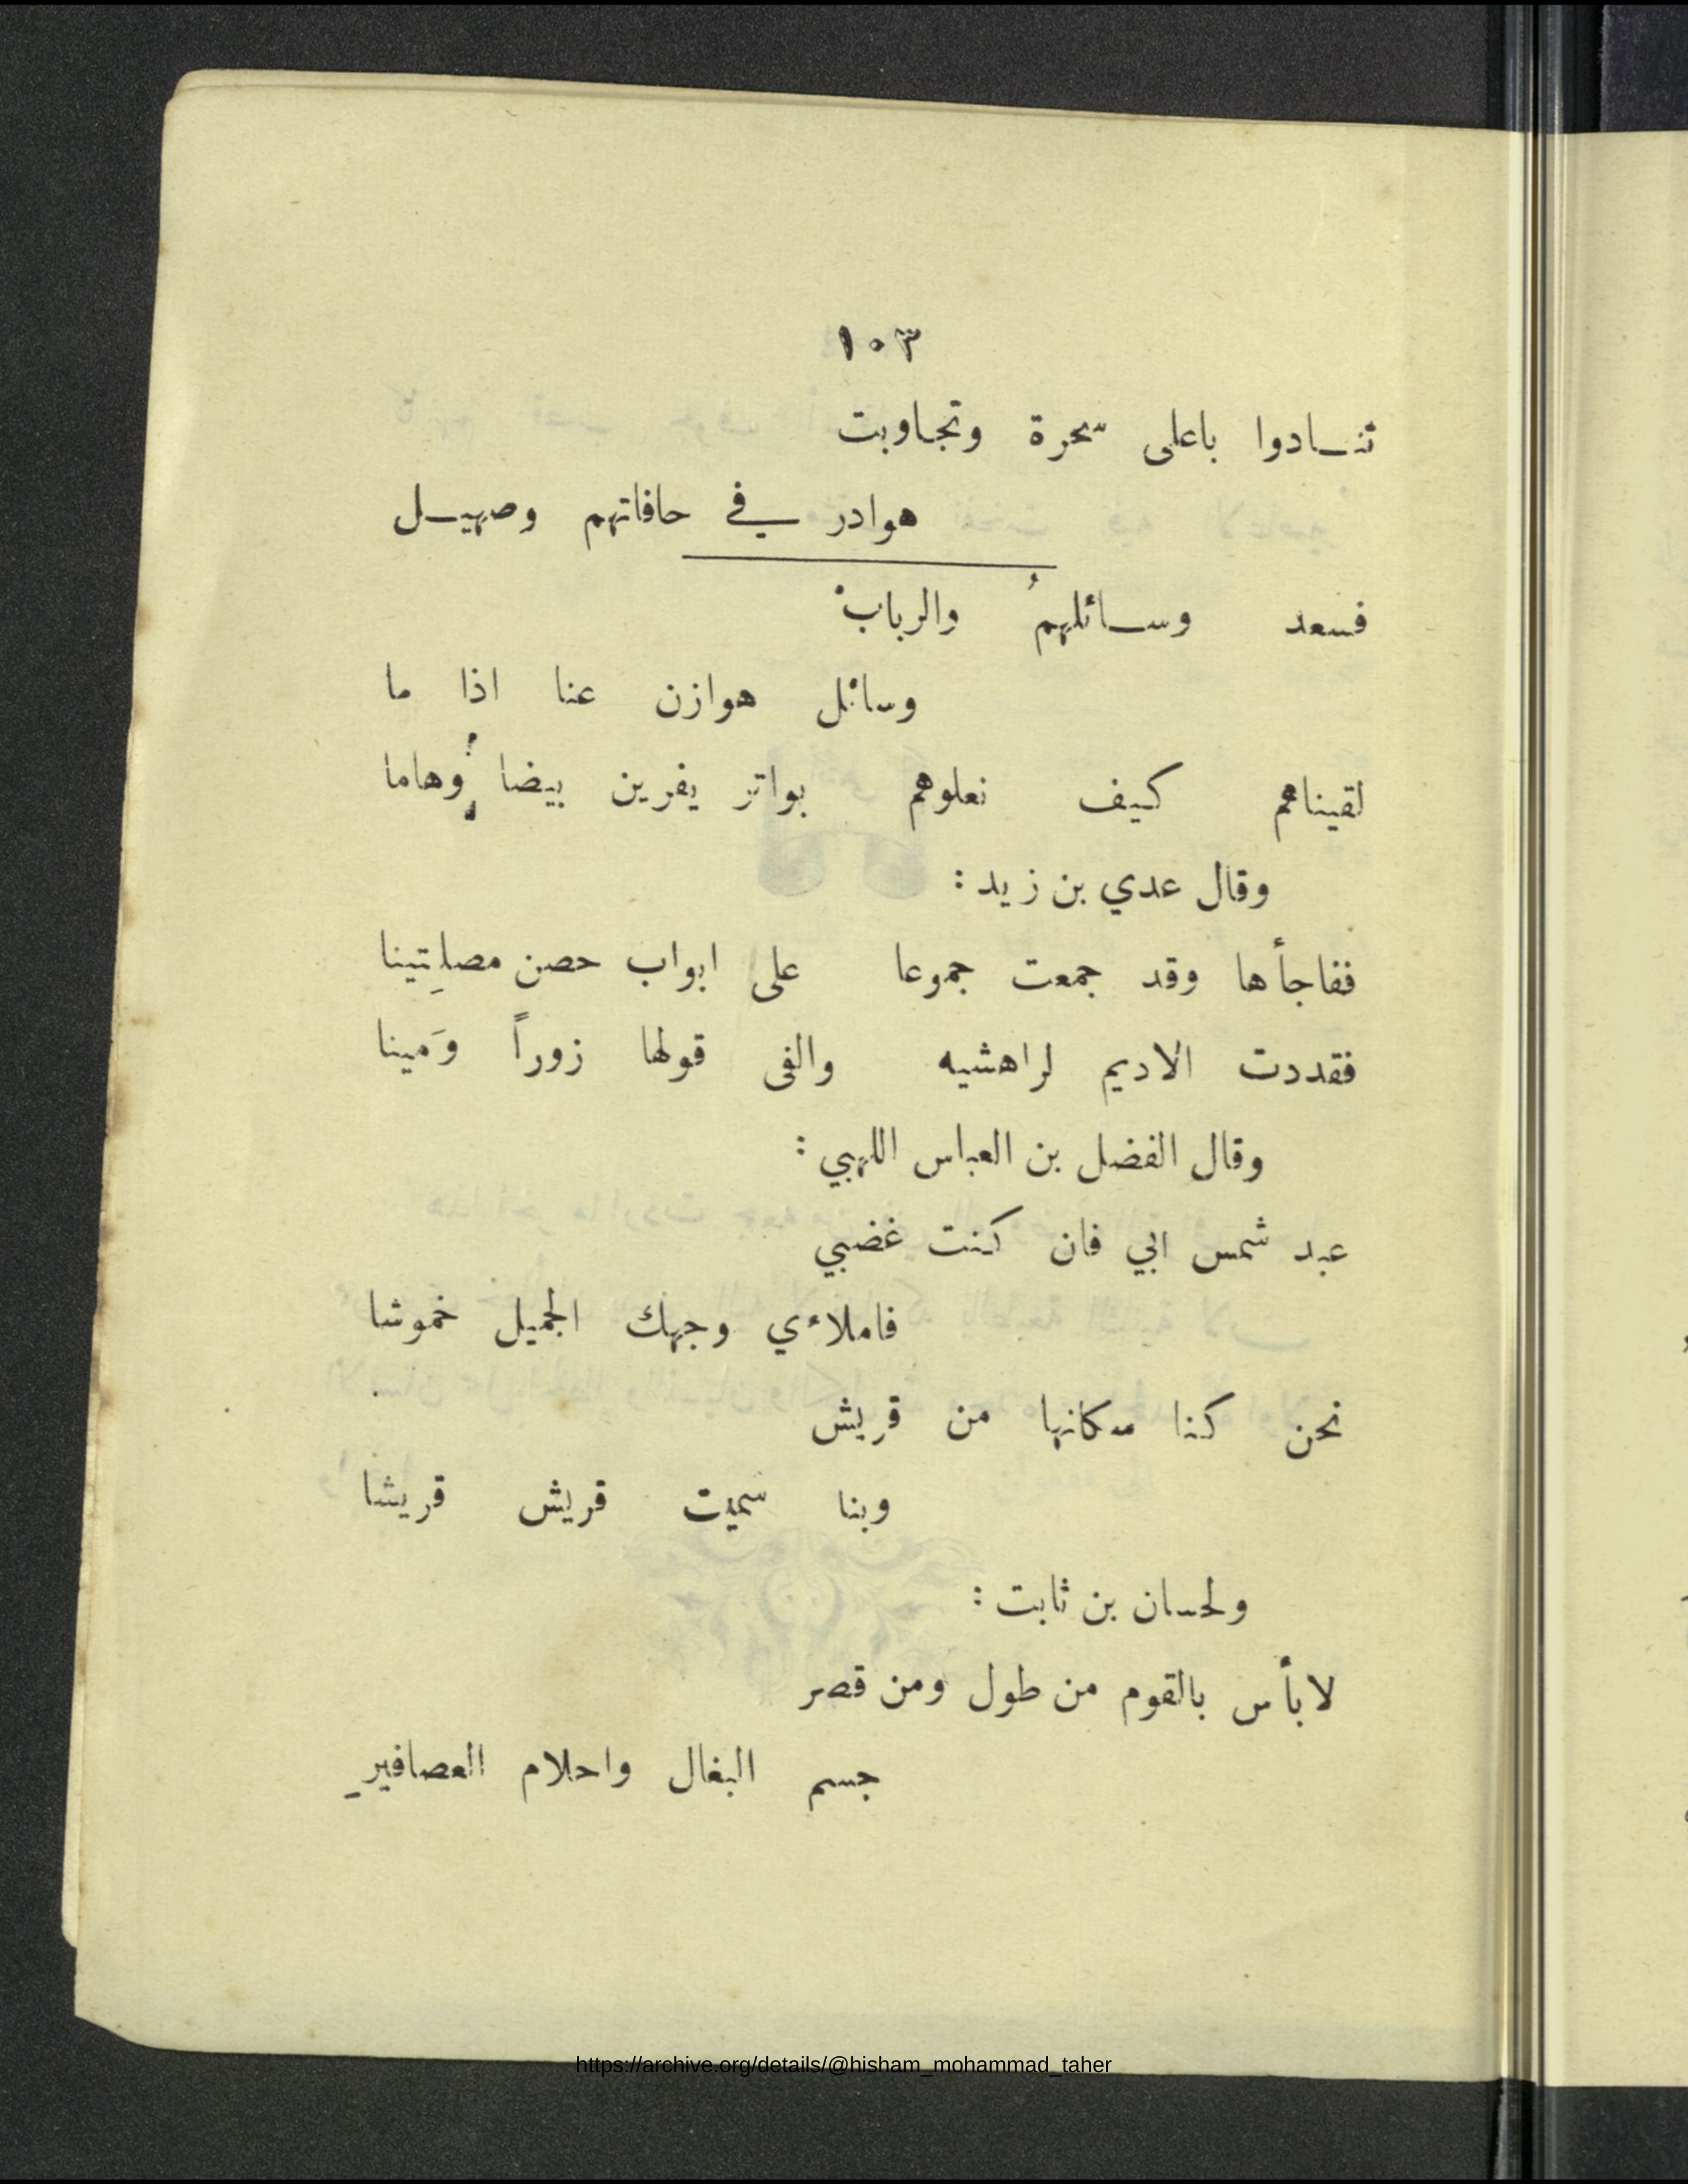 ١٠٣
تنـادوا باعلى سحرة وتجاوبت
هوادر في حافاتهم وصهيـل
فسعد وسـائلهمُ والرباب
وسائل هوازن عنا اذا ما
لقيناهم كيف نعلوهم بواتر يفرين بيضا وهاما
وقال عدي بن زيد :
ففاجأها وقد جمعت جموعا على ابواب حصن مصلِتينا
فقددت الاديم لراهشيه والفى قولها زوراً وَمينا
وقال الفضل بن العباس اللهبي :
عبد شمس ابي فان كنت غضبي
فاملاءي وجهك الجميل خموشا
نحن كنا مكانها من قريش
وبنا سميت قريش قريشا
ولحسان بن ثابت :
لا بأس بالقوم من طول ومن قصر
جسم البغال واحلام العصافيرِ
https://archive.org/details/@hisham_mohammad_taher